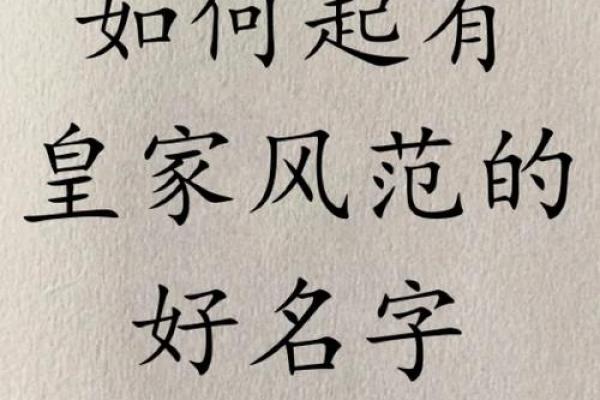 如何起有
皇家风范的
好名字